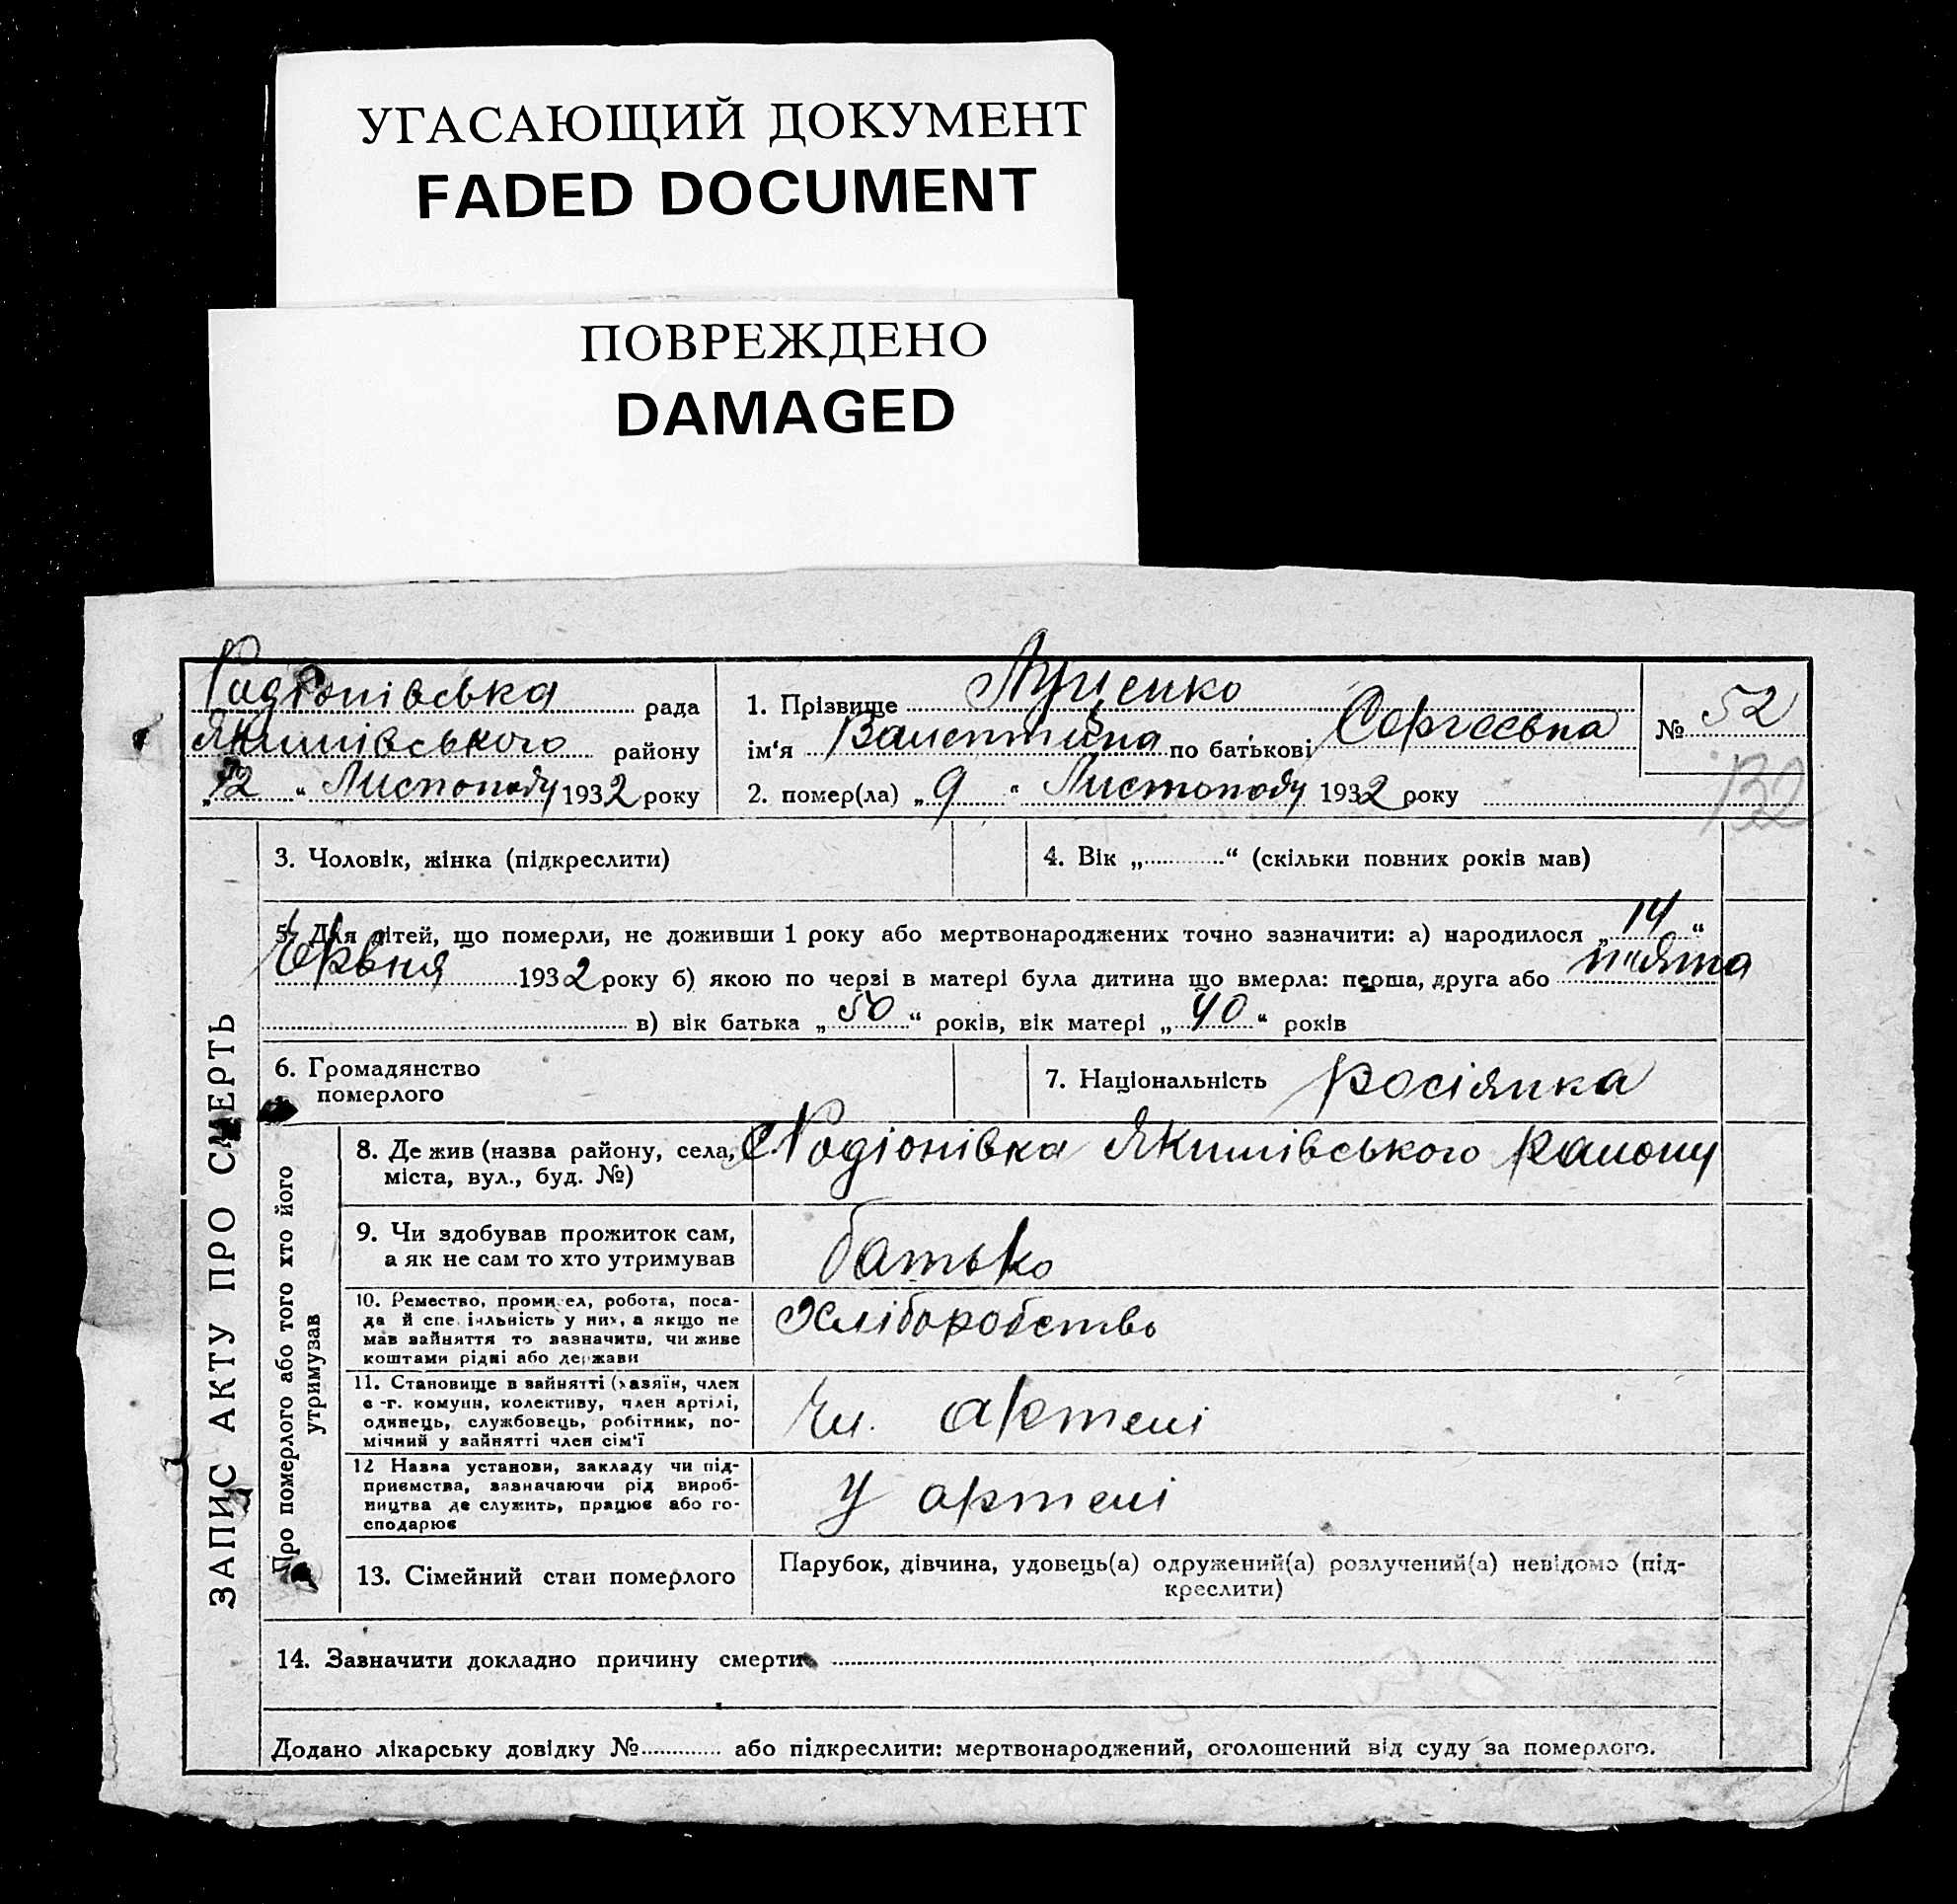 УГАСАЮЩИЙ ДОКУМЕНТ
FADED DOCUMENT
ПОВРЕЖДЕНО
DAMAGED
Радіонівська рада
Якимівського району
„12“ Листопаду 1932 року
1. Прізвище Луценко
ім'я Валентина по батькові Сергеєвна
2. помер(ла) „9“ Листопаду 1932 року
№ 52
132
ЗАПИС АКТУ ПРО СМЕРТЬ
3. Чоловік, жінка (підкреслити)
4. Вік „............“ (скільки повних років мав)
5. Для дітей, що померли, не доживши 1 року або мертвонароджених точно зазначити: а) народилося „14“
Червня 1932 року б) якою по черзі в матері була дитина що вмерла: перша, друга або п'ята
в) вік батька „50“ років, вік матері „40“ років
6. Громадянство
померлого
7. Національність росіянка
Про померлого або того хто його
утримував
8. Де жив (назва району, села,
міста, вул., буд. №)
с. Радіонівка Якимівського району
9. Чи здобував прожиток сам,
а як не сам то хто утримував
батько
10. Ремество, промисел, робота, поса-
да й спеціяльність у них, а якщо не
мав зайняття то зазначити, чи живе
коштами рідні або держави
Хліборобство
11. Становище в зайнятті (хазяїн, член
с.-г. комуни, колективу, член артілі,
одинець, службовець, робітник, по-
мічний у зайнятті член сім'ї
Чл. артелі
12 Назва установи, закладу чи під-
приємства, зазначаючи рід вироб-
ництва де служить, працює або го-
сподарює
У артелі
13. Сімейний стан померлого
Парубок, дівчина, удовець(а) одружений(а) розлучений(а) невідомо (під-
креслити)
14. Зазначити докладно причину смерти
Додано лікарську довідку №............ або підкреслити: мертвонароджений, оголошений від суду за померлого.